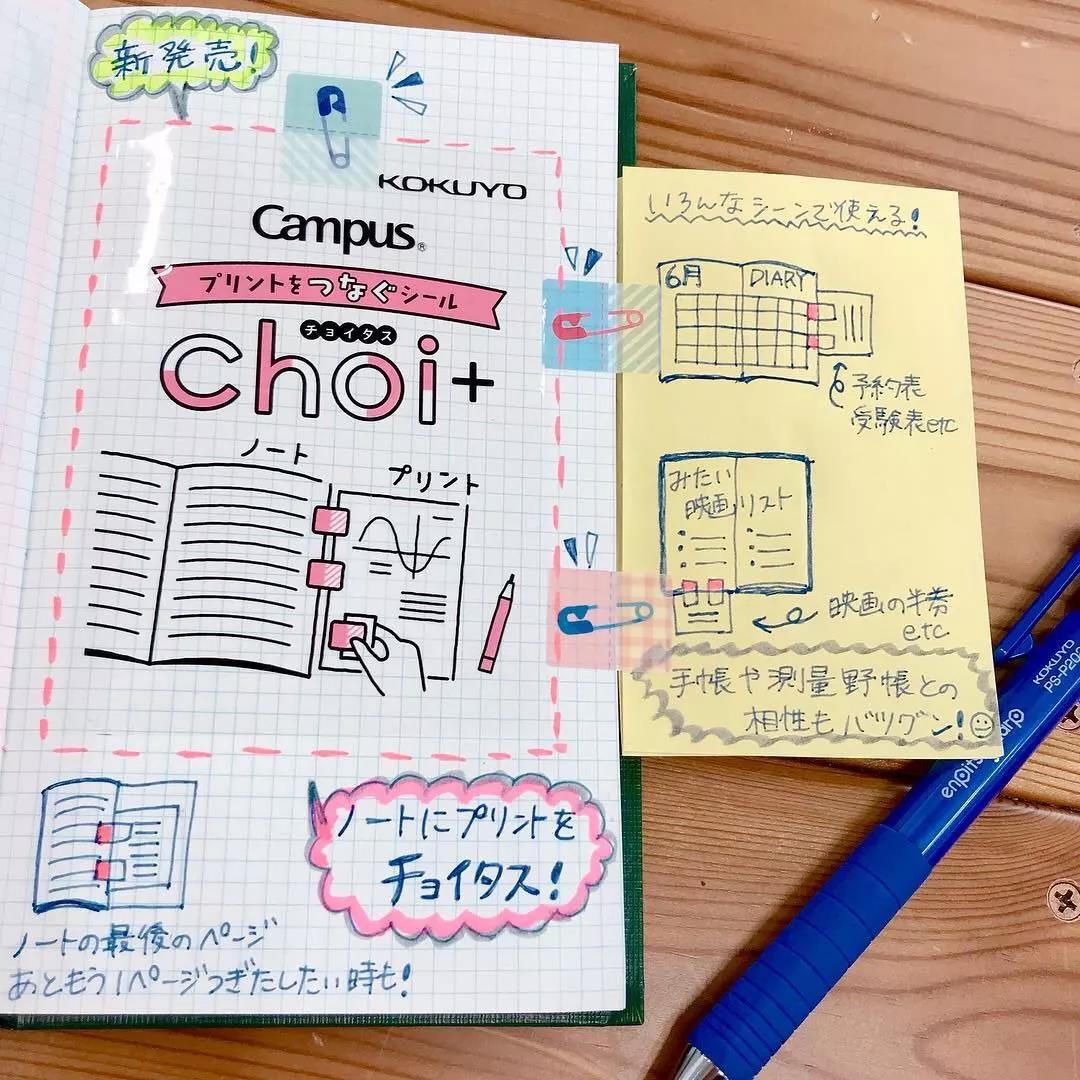 新発売!
KOKUYO
Campus®
プリントをつなぐシール
チョイタス
choi+
ノート
プリント
ノートにプリントを
チョイタス!
ノートの最後のページ
あともう1ページつぎたしたい時も!
いろんなシーンで使える!
6月 DIARY
予約表
受験表etc
みたい
映画リスト
映画の半券
etc
手帳や測量野帳との
相性もバツグン!
KOKUYO